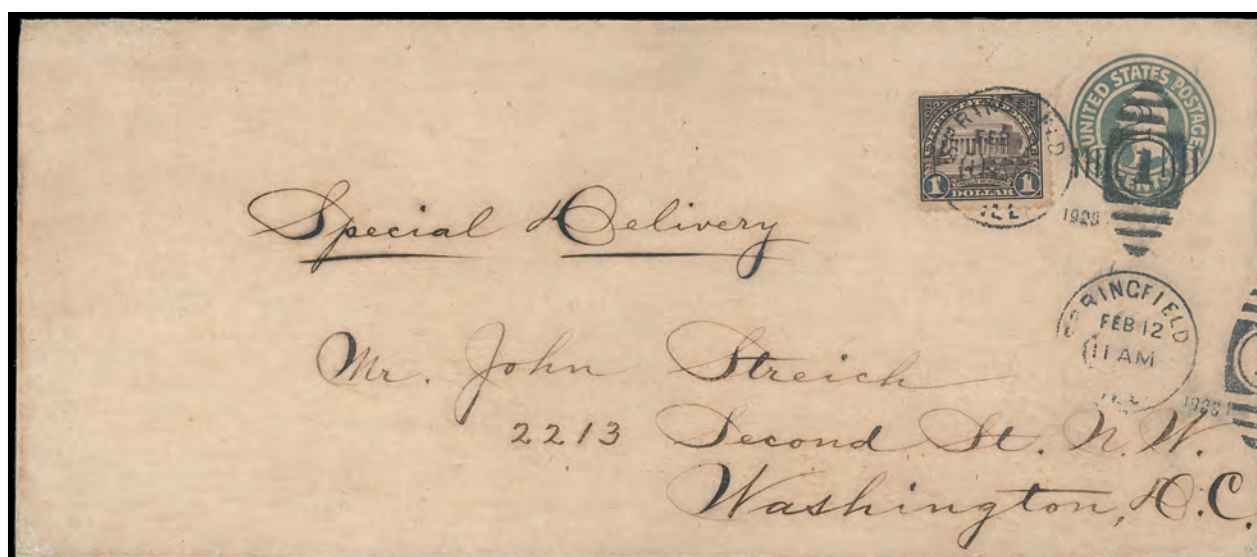 UNITED STATES POSTAGE
1 DOLLAR 1
SPRINGFIELD
FEB
ILL
1
1923
Special Delivery
SPRINGFIELD
FEB 12
11 AM
Mr. John Streich
2213 Second St. N.W.
Washington, D.C.